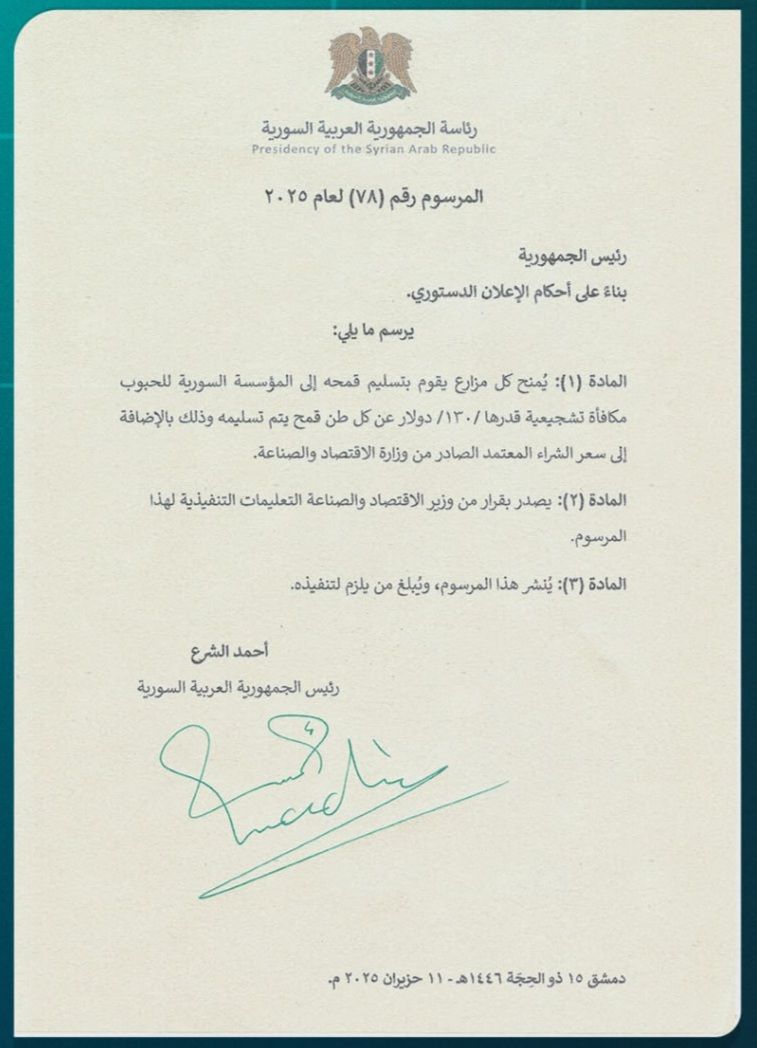 رئاسة الجمهورية العربية السورية
Presidency of the Syrian Arab Republic
المرسوم رقم (٧٨) لعام ٢٠٢٥
رئيس الجمهورية
بناءً على أحكام الإعلان الدستوري.
يرسم ما يلي:
المادة (١): يُمنح كل مزارع يقوم بتسليم قمحه إلى المؤسسة السورية للحبوب
مكافأة تشجيعية قدرها /١٣٠/ دولار عن كل طن قمح يتم تسليمه وذلك بالإضافة
إلى سعر الشراء المعتمد الصادر من وزارة الاقتصاد والصناعة.
المادة (٢): يصدر بقرار من وزير الاقتصاد والصناعة التعليمات التنفيذية لهذا
المرسوم.
المادة (٣): يُنشر هذا المرسوم، ويُبلغ من يلزم لتنفيذه.
أحمد الشرع
رئيس الجمهورية العربية السورية
دمشق ١٥ ذو الحِجَة ١٤٤٦هـ - ١١ حزيران ٢٠٢٥ م.